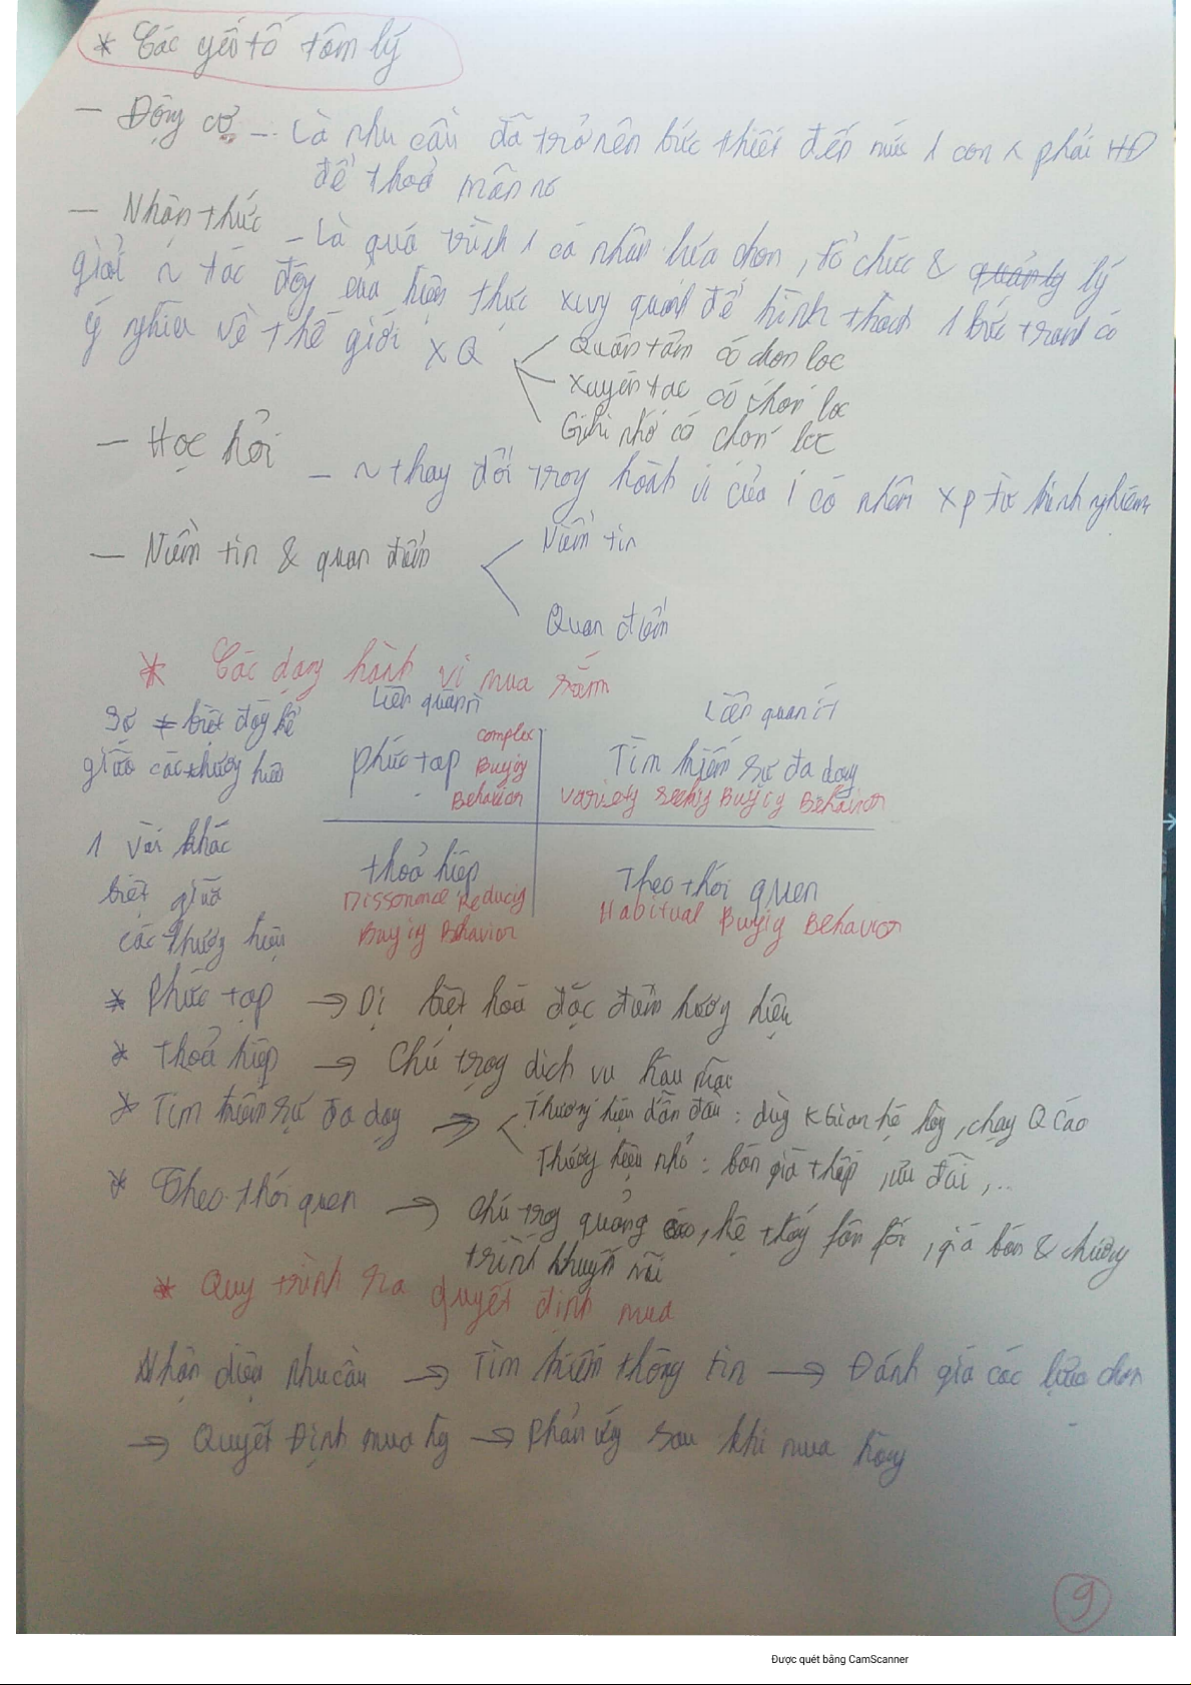 * Các yếu tố tâm lý
— Động cơ – Là nhu cầu đã trở nên bức thiết đến mức 1 con < phải HĐ
để thoả mãn nó
— Nhận thức – Là quá trình 1 cá nhân lựa chọn, tổ chức & quản lý lý
giải ~ tác động của hiện thực xung quanh để hình thành 1 bức tranh có
ý nghĩa về thế giới XQ
Quan tâm có chọn lọc
Xuyên tạc có chọn lọc
Ghi nhớ có chọn lọc
— Học hỏi – ~ thay đổi trong hành vi của 1 cá nhân xp từ kinh nghiệm
— Niềm tin & quan điểm
Niềm tin
Quan điểm
* Các dạng hành vi mua sắm
Liên quan n`
Liên quan ít
Sự ≠ biệt đáng kể
giữa các thương hiệu
Phức tạp
Complex
Buying
Behavior
Tìm kiếm sự đa dạng
Variety Seeking Buying Behavior
1 vài khác
biệt giữa
các thương hiệu
Thoả hiệp
Dissonance Reducing
Buying Behavior
Theo thói quen
Habitual Buying Behavior
* Phức tạp → Dị biệt hoá đặc điểm thương hiệu
* Thoả hiệp → Chú trọng dịch vụ hậu mãi
* Tìm kiếm sự đa dạng →
Thương hiệu dẫn đầu : dùng K Gian kệ hàng, chạy Q Cáo
Thương hiệu nhỏ : bán giá thấp, ưu đãi, ...
* Theo thói quen → Chú trọng quảng cáo, hệ thống phân phối, giá bán & chương
trình khuyến mãi
* Quy trình ra quyết định mua
Nhận diện nhu cầu → Tìm kiếm thông tin → Đánh giá các lựa chọn
→ Quyết Định mua hg → Phản ứng sau khi mua hàng
9
Được quét bằng CamScanner